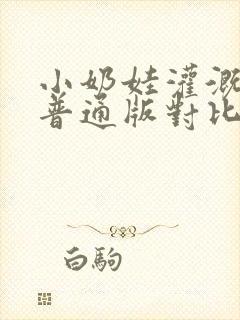 小奶娃灌溉
普通版對比
白駒